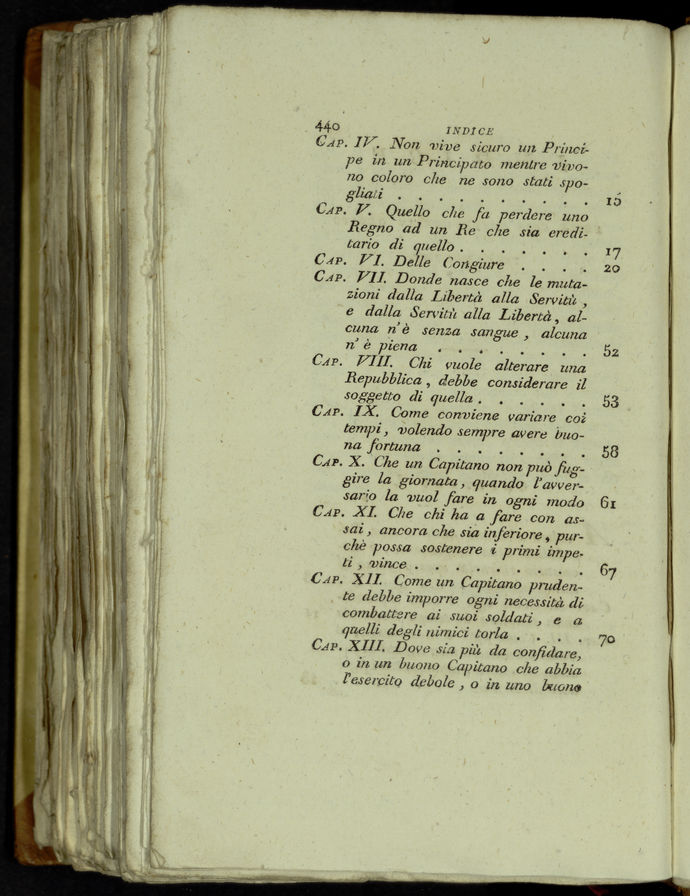 440 INDICE
CAP. IV. Non vive sicuro un Princi-
pe in un Principato mentre vivo-
no coloro che ne sono stati spo-
gliati . . . . . . . . . . 15
CAP. V. Quello che fa perdere uno
Regno ad un Re che sia eredi-
tario di quello . . . . . . . 17
CAP. VI. Delle Congiure . . . . 20
CAP. VII. Donde nasce che le muta-
zioni dalla Libertà alla Servitù ,
e dalla Servitù alla Libertà , al-
cuna n'è senza sangue , alcuna
n' è piena . . . . . . . . 52
CAP. VIII. Chi vuole alterare una
Repubblica , debbe considerare il
soggetto di quella . . . . . . 53
CAP. IX. Come conviene variare coi
tempi , volendo sempre avere buo-
na fortuna . . . . . . . . 58
CAP. X. Che un Capitano non può fug-
gire la giornata , quando l'avver-
sario la vuol fare in ogni modo 61
CAP. XI. Che chi ha a fare con as-
sai , ancora che sia inferiore , pur-
chè possa sostenere i primi impe-
ti , vince . . . . . . . . . 67
CAP. XII. Come un Capitano pruden-
te debbe imporre ogni necessità di
combattere ai suoi soldati , e a
quelli degli nimici torla . . . . 70
CAP. XIII. Dove sia più da confidare,
o in un buono Capitano che abbia
l'esercito debole , o in uno buono